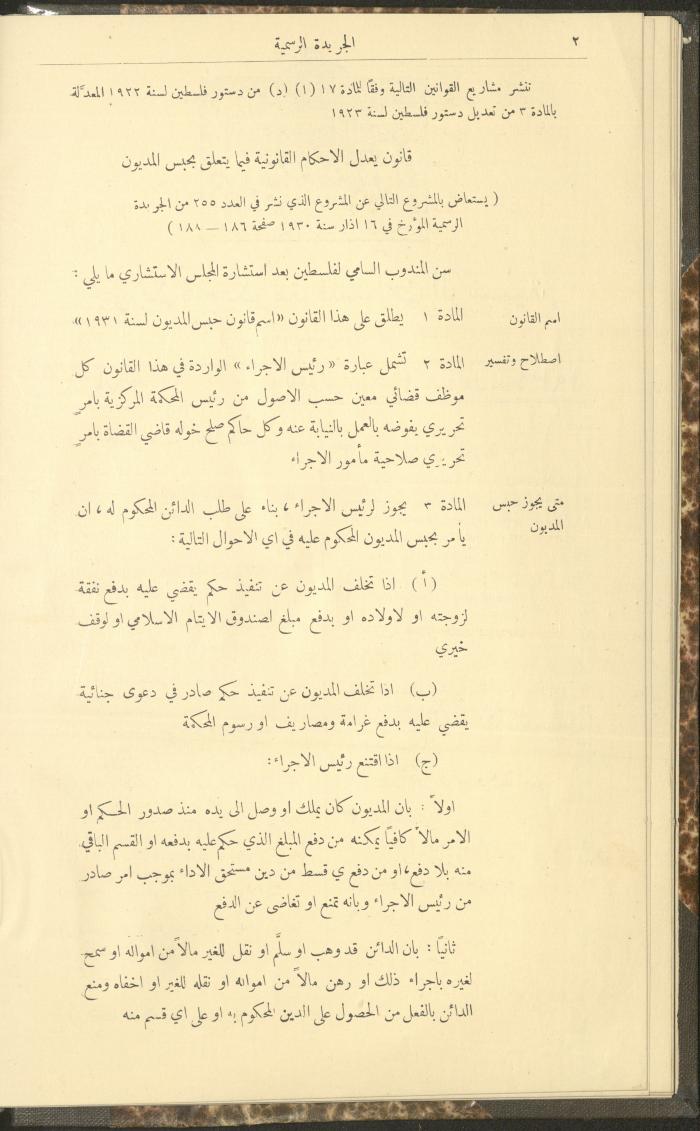 ٢
الجريدة الرسمية
ننشر مشاريع القوانين التالية وفقًا للمادة ١٧ (١) (د) من دستور فلسطين لسنة ١٩٢٢ المعدَّلة
بالمادة ٣ من تعديل دستور فلسطين لسنة ١٩٢٣
قانون يعدل الاحكام القانونية فيما يتعلق بحبس المديون
( يستعاض بالمشروع التالي عن المشروع الذي نشر في العدد ٢٥٥ من الجريدة
الرسمية المؤرخ في ١٦ اذار سنة ١٩٣٠ صفحة ١٨٦ — ١٨٨ )
سن المندوب السامي لفلسطين بعد استشارة المجلس الاستشاري ما يلي :
اسم القانون
المادة ١ يطلق على هذا القانون «اسم قانون حبس المديون لسنة ١٩٣١»
اصطلاح وتفسير
المادة ٢ تشمل عبارة « رئيس الاجراء » الواردة في هذا القانون كل
موظف قضائي معين حسب الاصول من رئيس المحكمة المركزية بامرٍ
تحريري يفوضه بالعمل بالنيابة عنه وكل حاكم صلح خوله قاضي القضاة بامرٍ
تحريري صلاحية مأمور الاجراء
متى يجوز حبس
المديون
المادة ٣ يجوز لرئيس الاجراء ، بناء على طلب الدائن المحكوم له ، ان
يأمر بحبس المديون المحكوم عليه في اي الاحوال التالية :
(أ) اذا تخلف المديون عن تنفيذ حكم يقضي عليه بدفع نفقة
لزوجته او لاولاده او بدفع مبلغ لصندوق الايتام الاسلامي او لوقف
خيري
(ب) اذا تخلف المديون عن تنفيذ حكم صادر في دعوى جنائية
يقضي عليه بدفع غرامة ومصاريف او رسوم المحكمة
(ج) اذا اقتنع رئيس الاجراء :
اولاً : بان المديون كان يملك او وصل الى يده منذ صدور الحكم او
الامر مالاً كافيًا يمكنه من دفع المبلغ الذي حكم عليه بدفعه او القسم الباقي
منه بلا دفع ، او من دفع ي قسط من دين مستحق الاداء بموجب امر صادر
من رئيس الاجراء وبانه تمنع او تغاضى عن الدفع
ثانيًا : بان الدائن قد وهب او سلَّم او نقل للغير مالاً من امواله او سمح
لغيره باجراء ذلك او رهن مالاً من امواله او نقله للغير او اخفاه ومنع
الدائن بالفعل من الحصول على الدين المحكوم به او على اي قسم منه